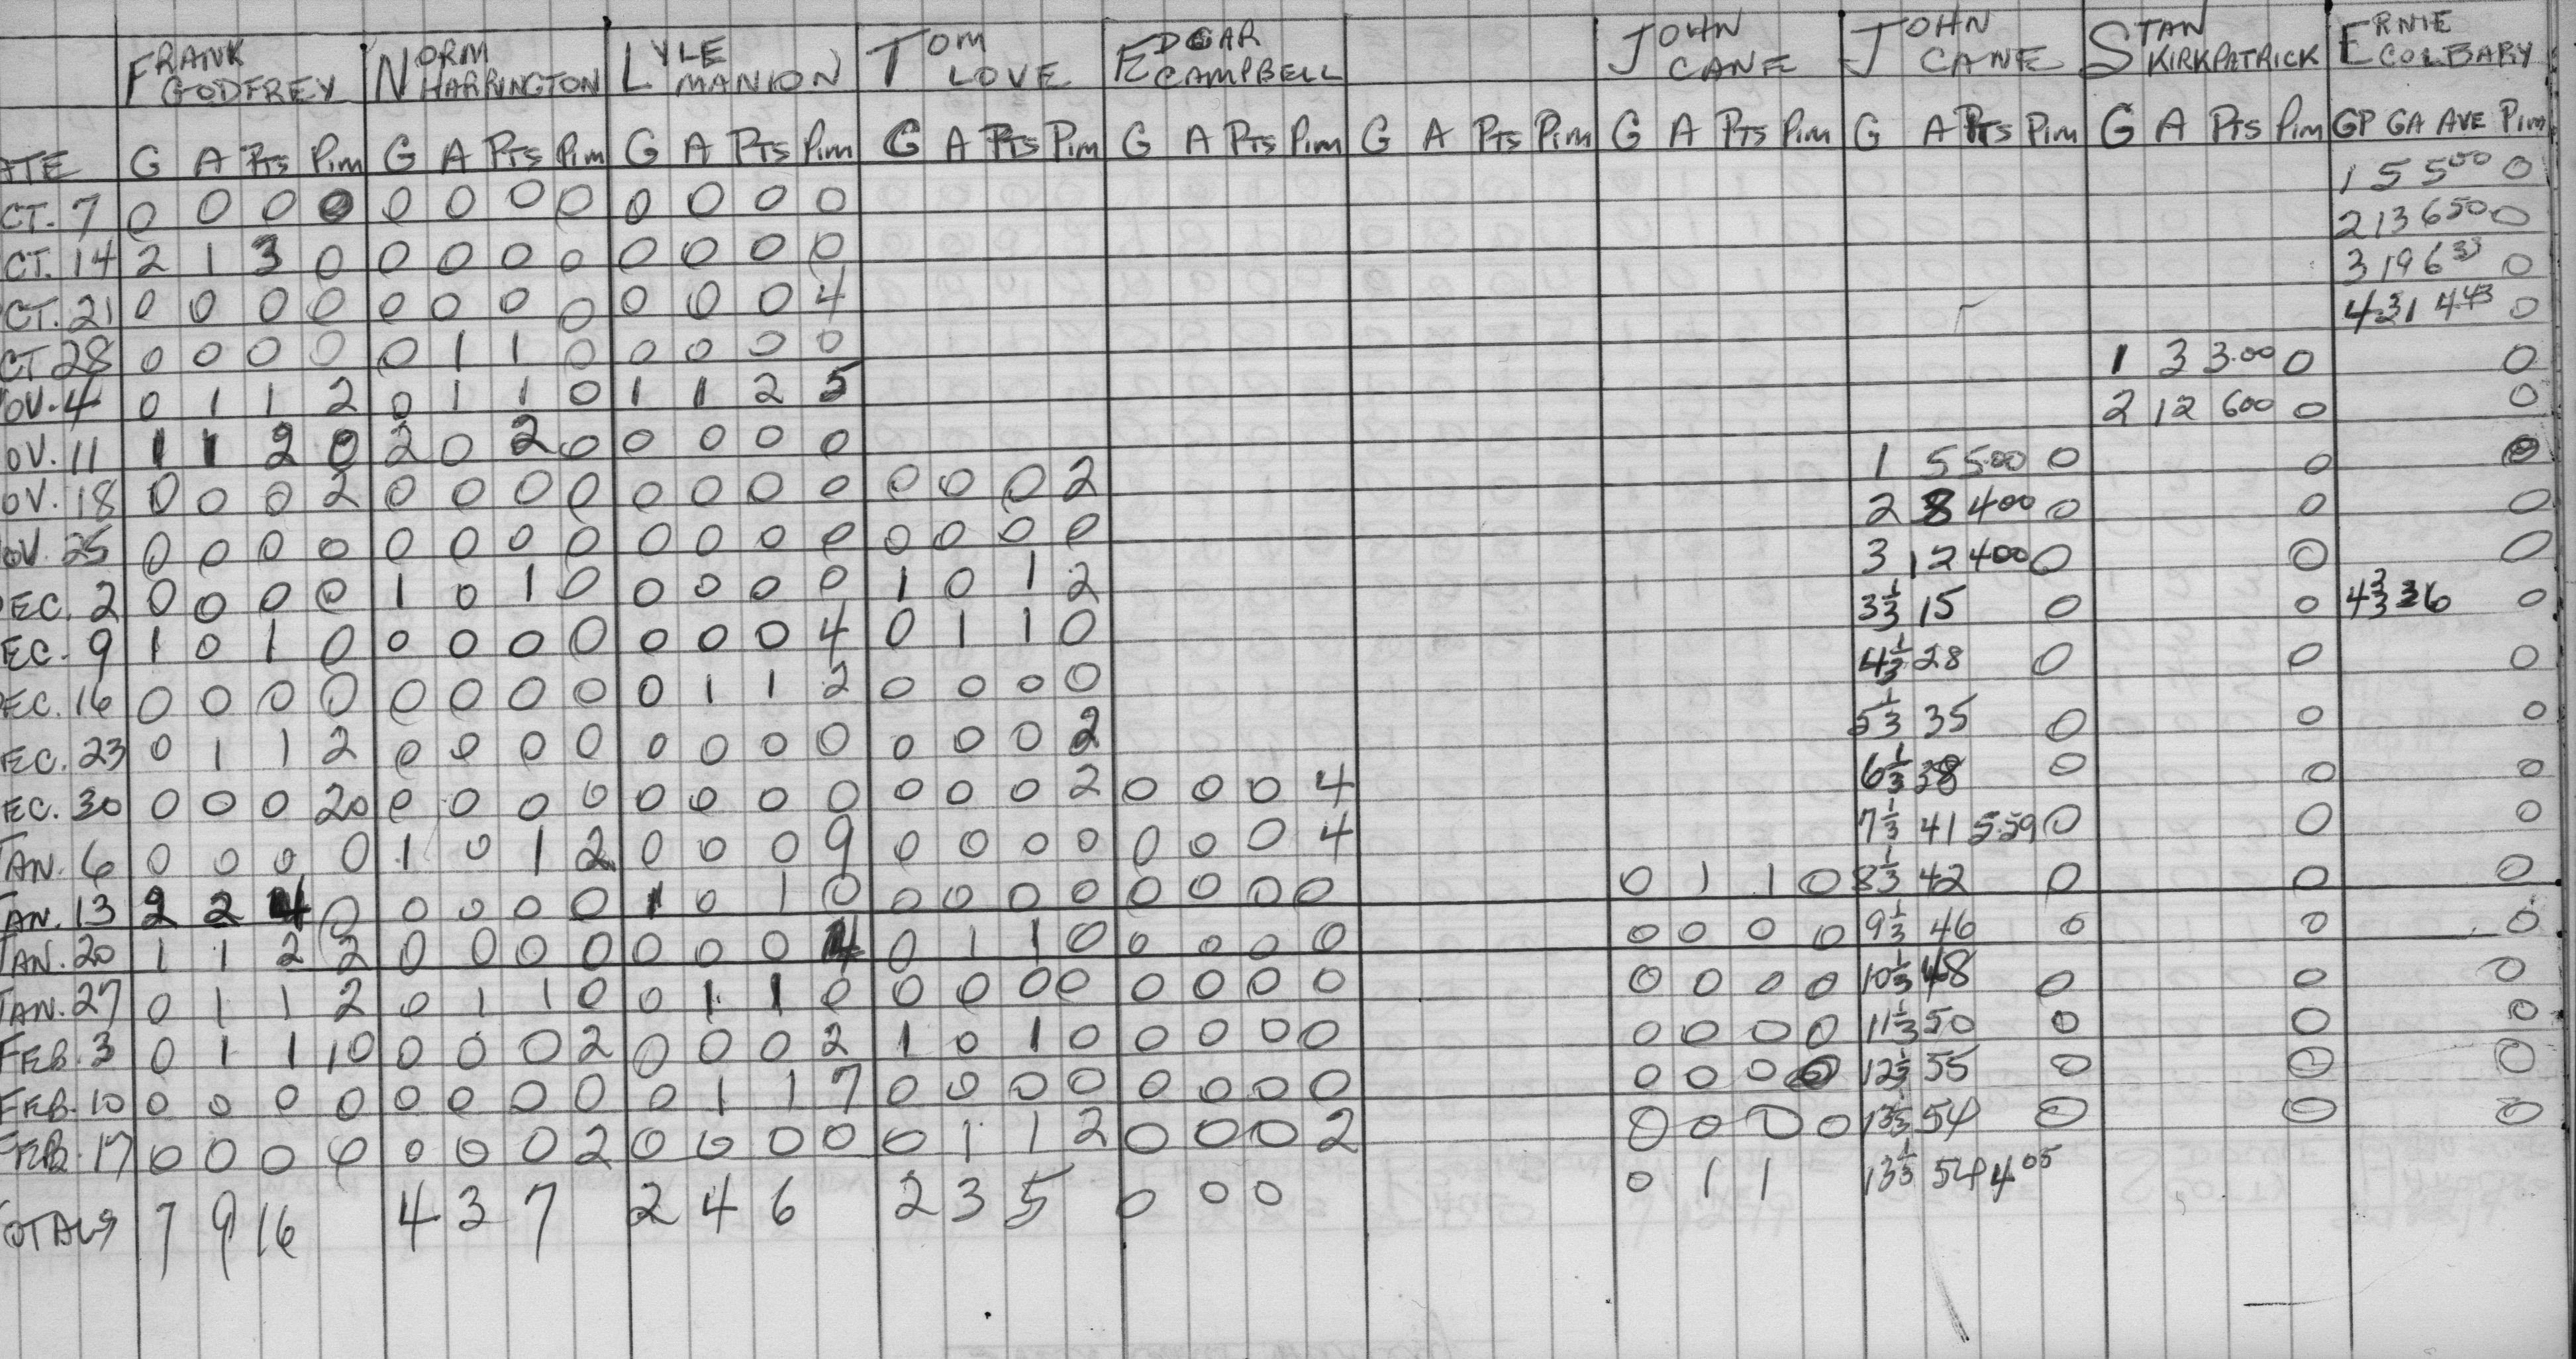 FRANK GODFREY NORM HARRINGTON LYLE MANION TOM LOVE EDGAR CAMPBELL JOHN CANE JOHN CANE STAN KIRKPATRICK ERNIE COLBARY
ATE G A PTS PIM G A PTS PIM G A PTS PIM G A PTS PIM G A PTS PIM G A PTS PIM G A PTS PIM G A PTS PIM G A PTS PIM GP GA AVE PIM
CT. 7 0 0 0 0 0 0 0 0 0 0 0 0 1 5 5.00 0
CT. 14 2 1 3 0 0 0 0 0 0 0 0 0 2 13 6.50 0
CT. 21 0 0 0 0 0 0 0 0 0 0 0 4 3 19 6.33 0
CT 28 0 0 0 0 0 1 1 0 0 0 0 0 4 31 4.43 0
OV. 4 0 1 1 2 0 1 1 0 1 1 2 5 1 3 3.00 0 0
OV. 11 1 1 2 0 2 0 2 0 0 0 0 0 2 12 600 0 0
OV. 18 0 0 0 2 0 0 0 0 0 0 0 0 0 0 0 2 1 5 5.00 0 0 0
OV. 25 0 0 0 0 0 0 0 0 0 0 0 0 0 0 0 0 2 8 400 0 0 0
EC. 2 0 0 0 0 1 0 1 0 0 0 0 0 1 0 1 2 3 12 400 0 0 0
EC. 9 1 0 1 0 0 0 0 0 0 0 0 4 0 1 1 0 3 1/3 15 0 0 4 2/3 36 0
EC. 16 0 0 0 0 0 0 0 0 0 1 1 2 0 0 0 0 4 1/3 28 0 0 0
EC. 23 0 1 1 2 0 0 0 0 0 0 0 0 0 0 0 2 5 1/3 35 0 0 0
EC. 30 0 0 0 20 0 0 0 0 0 0 0 0 0 0 0 2 0 0 0 4 6 1/3 38 0 0 0
AN. 6 0 0 0 0 1 0 1 2 0 0 0 9 0 0 0 0 0 0 0 4 7 1/3 41 5.59 0 0 0
AN. 13 2 2 4 0 0 0 0 0 1 0 1 0 0 0 0 0 0 0 0 0 0 1 1 0 8 1/3 42 0 0 0
AN. 20 1 1 2 2 0 0 0 0 0 0 0 4 0 1 1 0 0 0 0 0 0 0 0 0 9 1/3 46 0 0 0
AN. 27 0 1 1 2 0 1 1 0 0 1 1 0 0 0 0 0 0 0 0 0 0 0 0 0 10 1/3 48 0 0 0
FEB. 3 0 1 1 10 0 0 0 2 0 0 0 2 1 0 1 0 0 0 0 0 0 0 0 0 11 1/3 50 0 0 0
FEB. 10 0 0 0 0 0 0 0 0 0 1 1 7 0 0 0 0 0 0 0 0 0 0 0 0 12 1/3 55 0 0 0
FEB. 17 0 0 0 0 0 0 0 2 0 0 0 0 0 1 1 2 0 0 0 2 0 0 0 0 13 1/3 54 0 0 0
OTALS 7 9 16 4 3 7 2 4 6 2 3 5 0 0 0 0 1 1 13 1/3 54 4.05